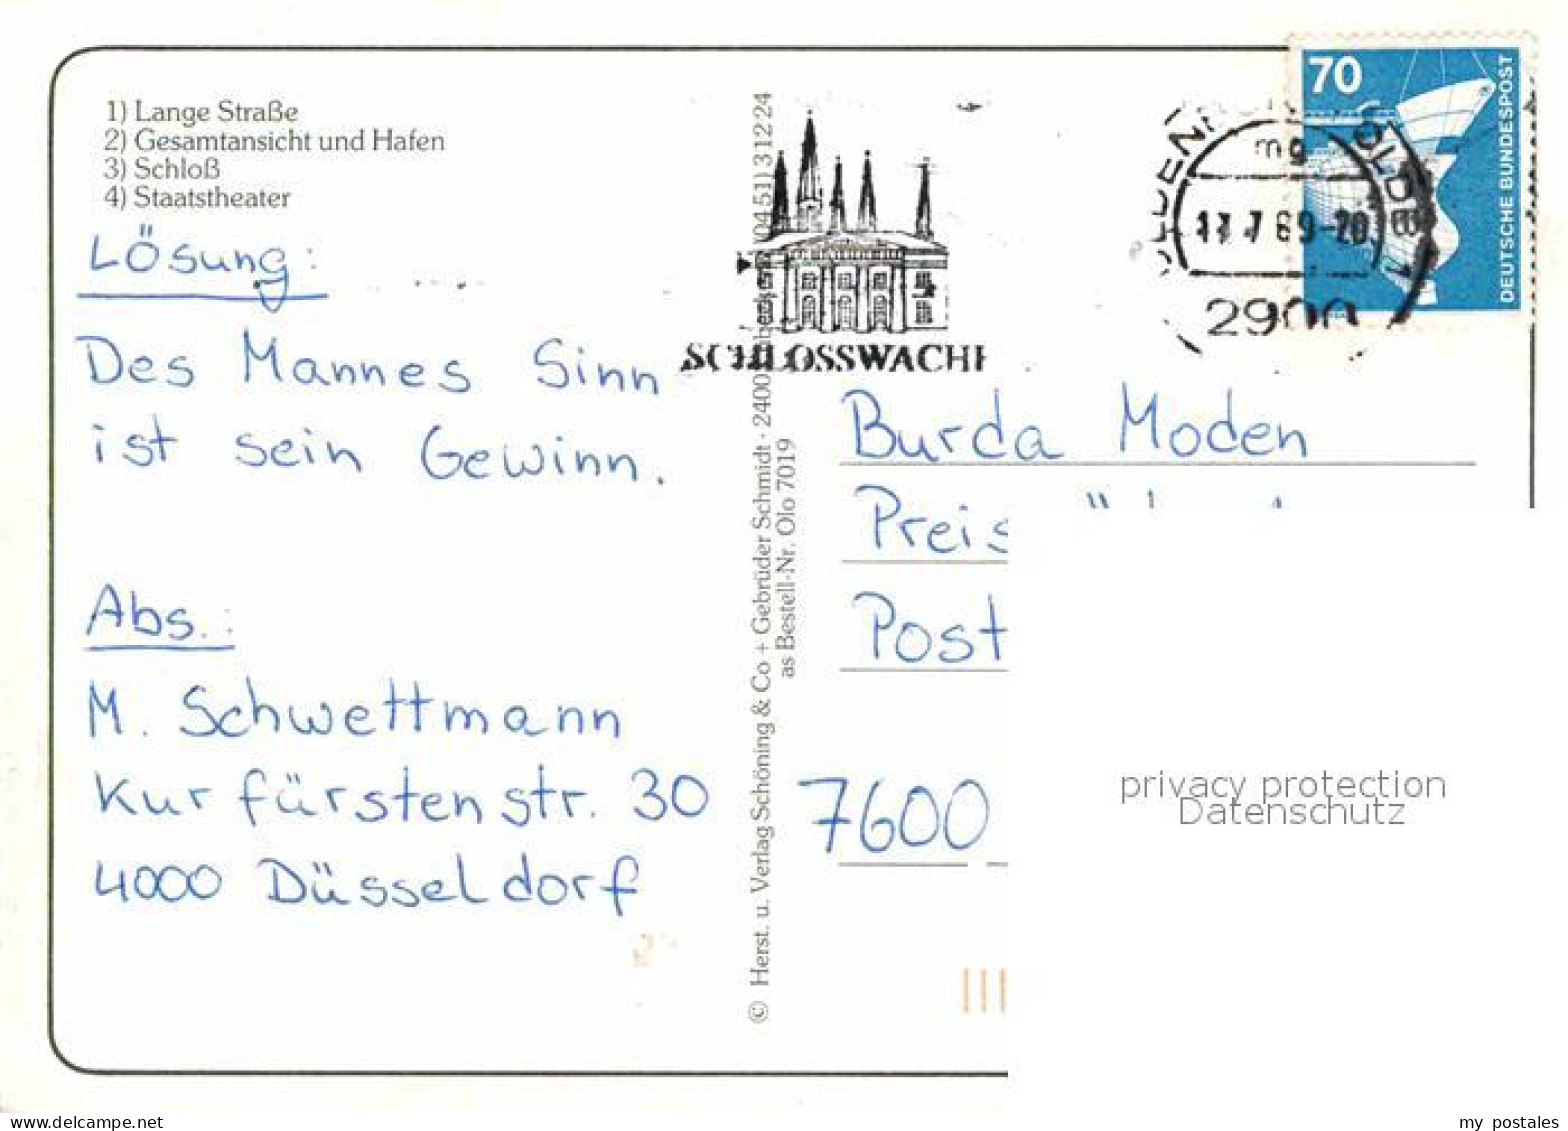 1) Lange Straße
2) Gesamtansicht und Hafen
3) Schloß
4) Staatstheater
Lösung:
Des Mannes Sinn
ist sein Gewinn.
Abs.:
M. Schwettmann
Kurfürstenstr. 30
4000 Düsseldorf
© Herst. u. Verlag Schöning & Co + Gebrüder Schmidt · 2400 (0451) 31224
as Bestell-Nr. Olo 7019
SCHLOSSWACHE
mg
2900
70
DEUTSCHE BUNDESPOST
Burda Moden
Preis
Post
7600
privacy protection
Datenschutz
my postales